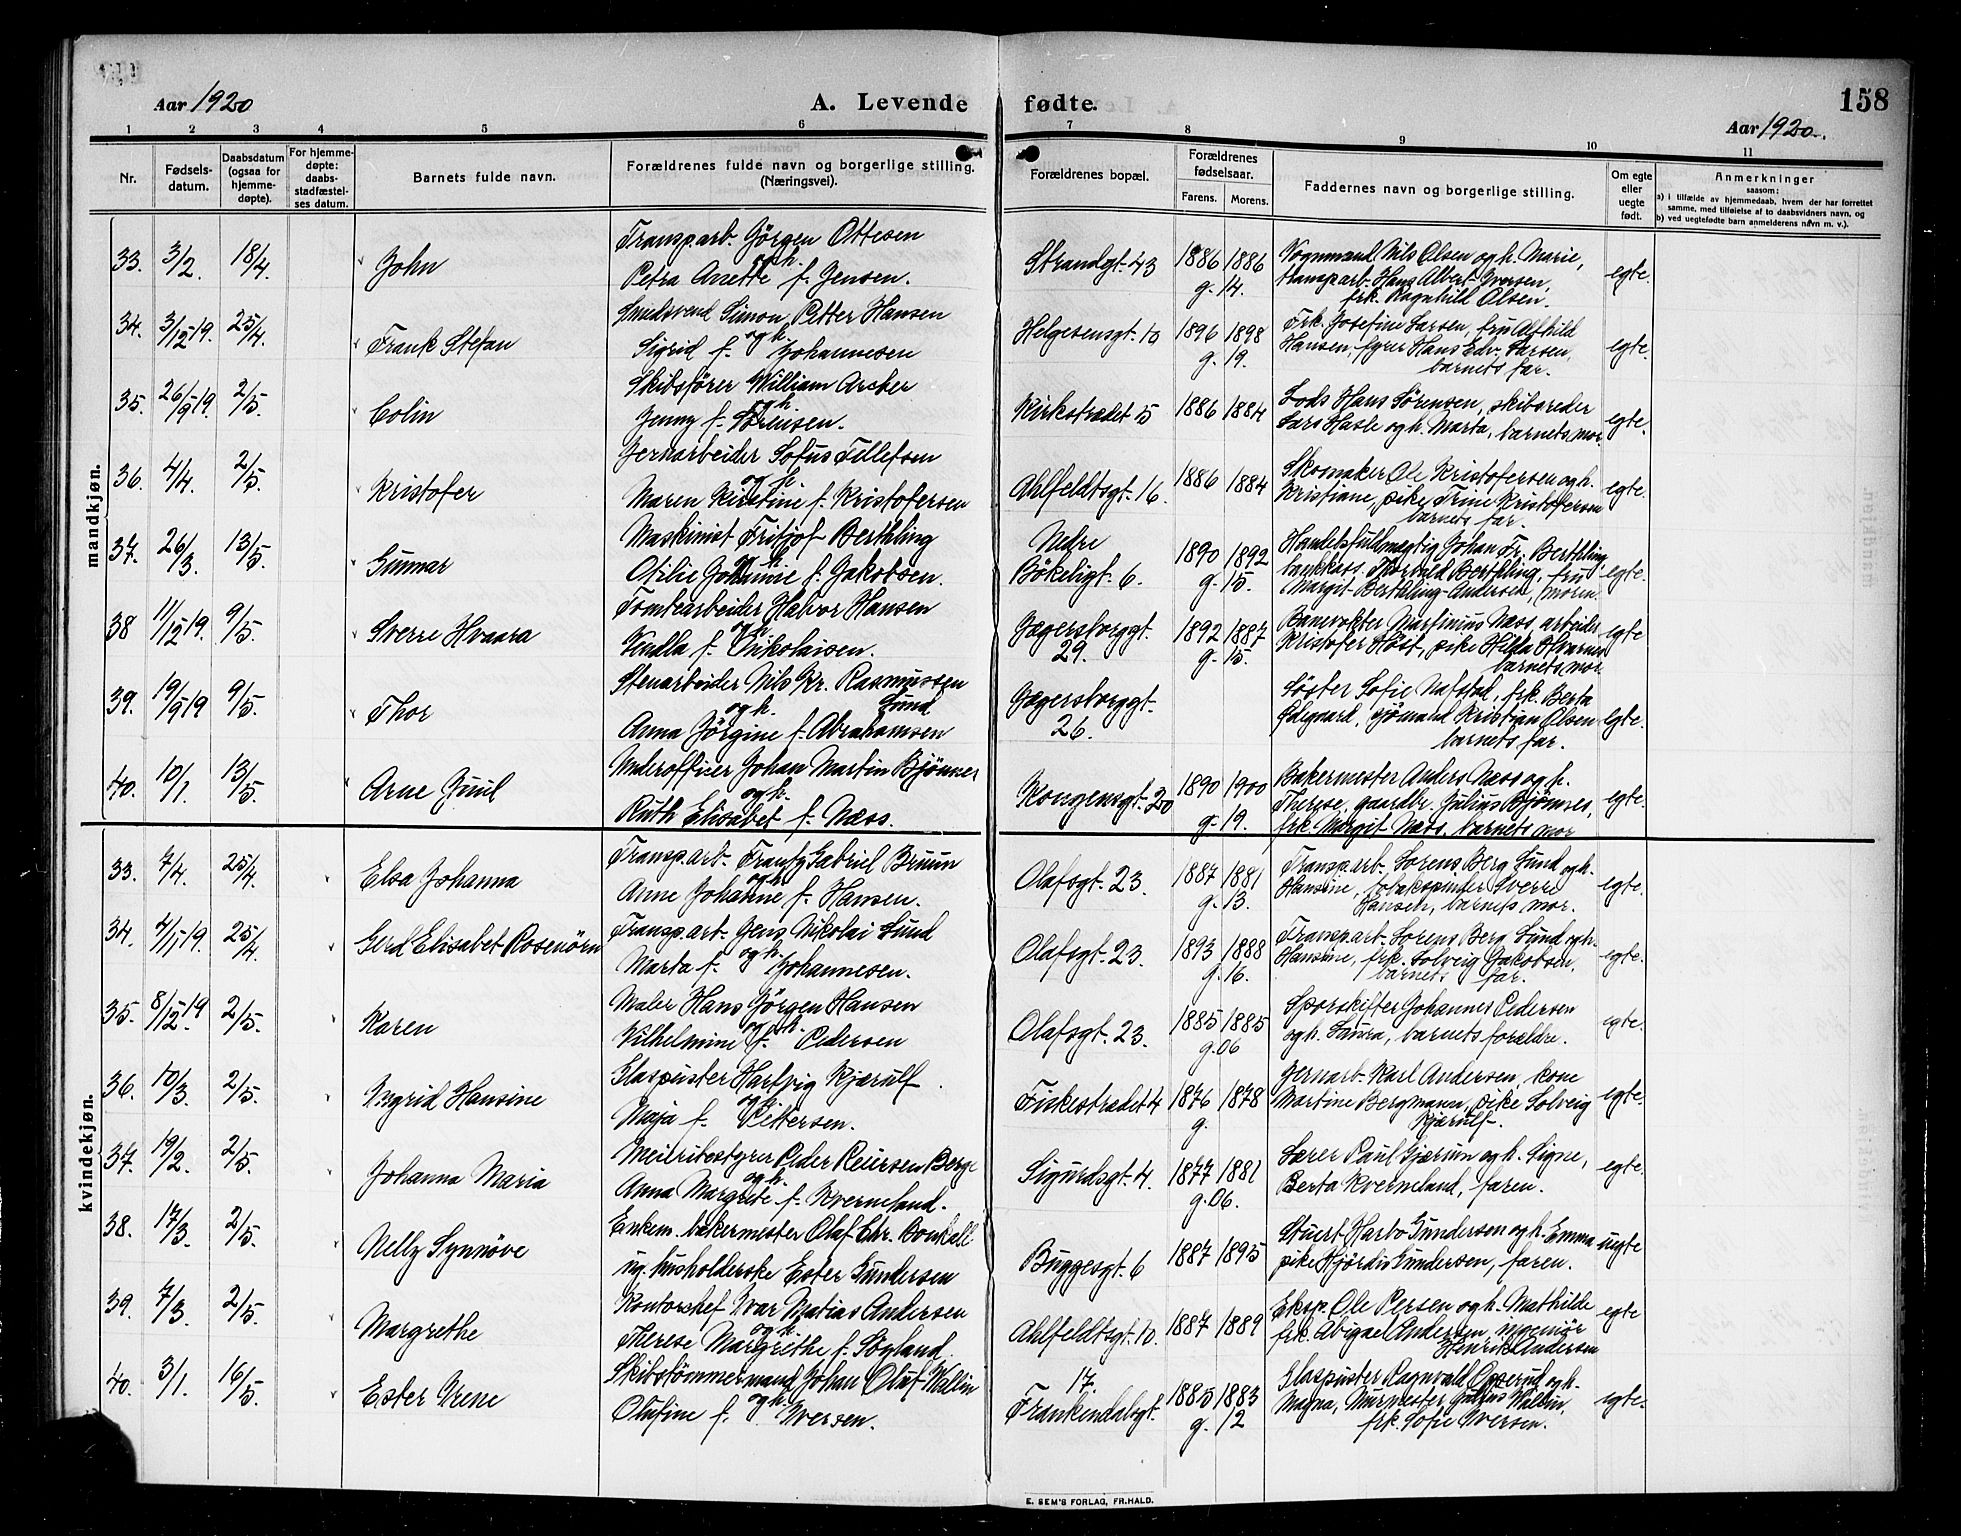 158
Aar 1920
A. Levende fødte.
Aar 1920.
1 2 3 4 5 6 7 8 9 10 11
Nr.
Fødsels-
datum.
Daabsdatum
(ogsaa for
hjemme-
døpte).
For hjemme-
døpte:
daabs-
stadfæstel-
ses datum.
Barnets fulde navn.
Forældrenes fulde navn og borgerlige stilling.
(Næringsvei).
Forældrenes bopæl.
Forældrenes
fødselsaar.
Farens. Morens.
Faddernes navn og borgerlige stilling.
Om egte
eller
uegte
født.
Anmerkninger
saasom:
a) i tilfælde av hjemmedaab, hvem der har forrettet
samme, med tilføielse af to daabsvidners navn, og
b) ved uegtefødte barn anmelderens navn m. v.).
mandkjøn.
33. 3/2. 18/4. John
Transp.arb. Jörgen Ottesen
og h.
Petra Anette f. Jensen.
Strandgt. 43 1886 1886 g. 14.
Vognmand Nils Olsen og h. Marie,
transp.arb. Hans Albert Iversen,
frk. Ragnhild Olsen.
egte.
34. 3/12 19. 25/4. Frank Stefan
Smedsvend Simon Petter Hansen
og h.
Sigrid f. Johannesen
Helgesensgt. 10 1896 1898 g. 19.
Frk. Josefine Larsen, fru Alfhild
Hansen, fyrer Hans Edv. Larsen,
barnets far.
egte.
35. 26/9 19. 2/5. Colin
Skibsförer William Archer
og h.
Jenny f. Sörensen.
Kirkestrædet 5 1886 1884
Lods Hans Sörensen, skibsreder
Lars Hasle og h. Marta, barnets mor
egte.
36. 4/4. 2/5. Kristofer
Jernarbeider Sofus Tillefsen
og h.
Maren Kirstine f. Kristofersen
Ahlfeldtsgt. 16. 1886 1884
Skomaker Ole Kristofersen og h.
Kristiane, pike Trine Kristofersen
barnets far.
egte.
37. 26/3. 13/5. Gunnar
Maskinist Fritjof Berthling
og h.
Otilie Johanne f. Jakobsen.
Nedre
Bökeligt. 6. 1890 1892 g. 15.
Handelsfuldmægtig Johan Fr. Berthling,
bankkass. Thorvald Berthling, fru
Margit Berthling-Andersen, moren
egte.
38 11/12 19. 9/5. Sverre Hvaara
Tomtearbeider Halvor Hansen
og h.
f. Nikolaisen.
Jægersborggt.
29. 1892 1887 g. 15.
Banevokter Martinius Næss, arbeider
Kristofer Höst, pike Hilda
barnets mor.
egte
39. 19/9 19 9/5. Thor
Stenarbeider Nils Kr. Rasmussen
og h. Lund
Anna Jörgine f. Abrahamsen
Jægersborggt.
26.
Söster Sofie Nafstad, frk. Berta
Ødegaard, sjömand Kristian Olsen
barnets far.
egte.
40. 10/1. 13/5. Arne Juul
Underofficer Johan Martin Bjönnes
og h.
Ruth Elisabet f. Næss.
Kongensgt. 20 1890 1900 g. 19.
Bakermester Anders Næss og h.
Therese, gaardbr. Julius Bjönnes,
frk. Margit Næss, barnets mor
egte.
kvindekjøn.
33. 7/4. 25/4. Elsa Johanna
Transp.arb. Frantz Gabriel Bruun
og h.
Anne Johanne f. Hansen.
Olafsgt. 23. 1887 1881 g. 13.
Transp.arb. Lorens Berg Lund og h.
Hansine, tobakspinder Sverre
Hansen, barnets mor.
egte.
34. 4/11 19. 25/4. Gerd Elisabet Rosenörn
Transp.arb. Jens Nikolai Lund
og h.
Marta f. Johannesen.
Olafsgt. 23. 1893 1888 g. 16.
Transp.arb. Lorens Berg Lund og h.
Hansine, frk. Solveig Jakobsen,
barnets far.
egte.
35. 8/12 19 2/5. Karen
Maler Hans Jörgen Hansen
og h.
Vilhelmine f. Pedersen
Olafsgt. 23. 1885 1885 g. 06
Sporskifter Johannes Pedersen
og h. Laura, barnets forældre.
egte.
36. 10/3. 2/5. Ingrid Hansine
Glaspuster Hartvig Kjærulf
og h.
Maja f. Pettersen.
Fiskestrædet 4 1876 1878 g.
Jernarb. Karl Andersen, kone
Martine Bergmann, pike Solveig
Kjærulf.
egte.
37. 19/2. 2/5. Johanna Maria
Meieribestyrer Peder Reiersen Berge
og h.
Anna Margrete f. Kverneland.
Sigurdsgt. 4. 1877 1881 g. 06.
Lærer Paul Gjærum og h. Signe,
Berta Kverneland, faren.
egte.
38. 17/3. 2/5. Nelly Synnöve
Enkem. bakermester Olaf Chr. Bonkall
ug. husholderske Ester Gundersen
Buggesgt. 6 1887 1895
Stuert Harbo Gundersen og h. Emma
pike Hjördis Gundersen, faren.
uegte
39. 7/3. 2/5. Margrethe
Kontorchef Ivar Matias Andersen
og h.
Therese Margrethe f. Sogland.
Ahlfeldtsgt. 10. 1887 1889
Eksp. Ole Persen og h. Mathilde
frk. Abigael Andersen, ingeniör
Henrik Andersen
egte
40. 3/1. 16/5. Ester Irene
Skibstömmermand Johan Oluf Wallin
og h.
Olufine f. Iversen.
17.
Frankendalsgt. 1885 1883 g. 12
Glaspuster Ragnvald Opperud og h.
Magna, Murmester Julius Wallin,
frk. Sofie Iversen.
egte.
E. SEM'S FORLAG, FR.HALD.